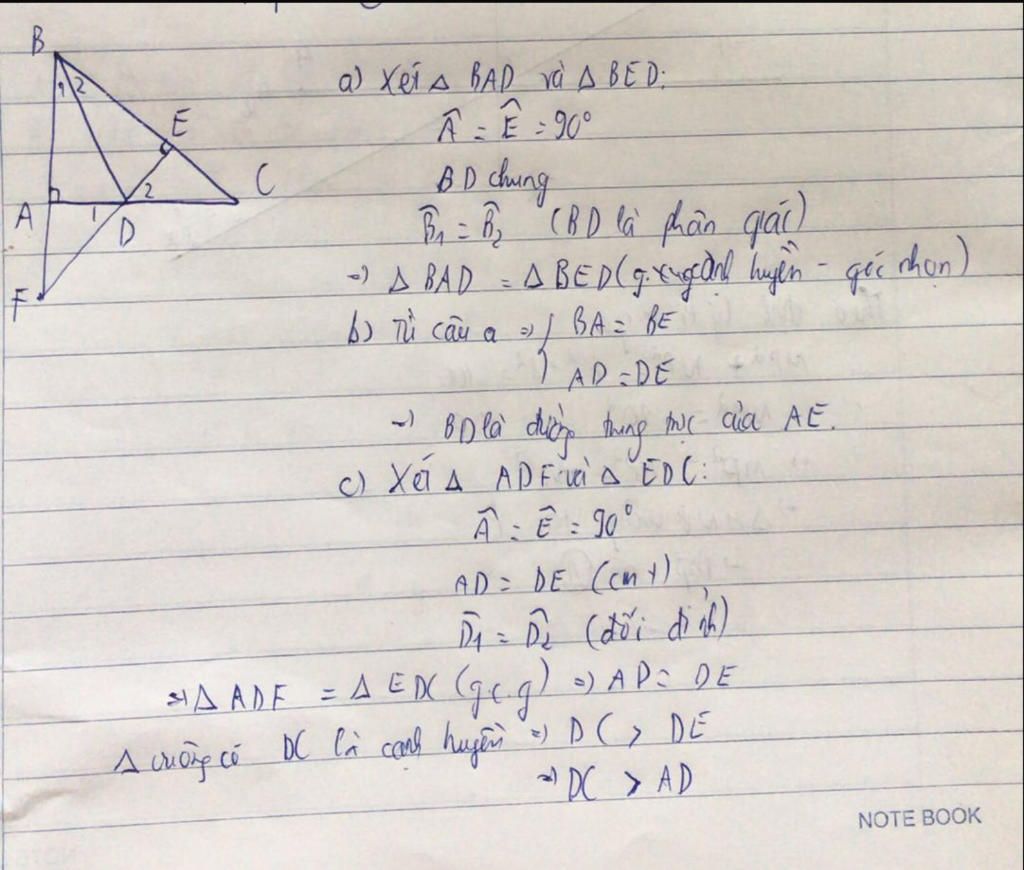 B
1 2
E
C
A
1
D
2
F
a) Xét Δ BAD và Δ BED:
Â = Ê = 90°
BD chung
B̂₁ = B̂₂ (BD là phân giác)
=> Δ BAD = Δ BED ( huyền - góc nhọn)
b) Từ câu a => { BA = BE
AD = DE
=> BD là đường trung trực của AE.
c) Xét Δ ADF và Δ EDC:
Â = Ê = 90°
AD = DE (cmt)
D̂₁ = D̂₂ (đối đỉnh)
=> Δ ADF = Δ EDC (g.c.g) => AD = DE
Δ vuông có DC là cạnh huyền => DC > DE
=> DC > AD
NOTE BOOK